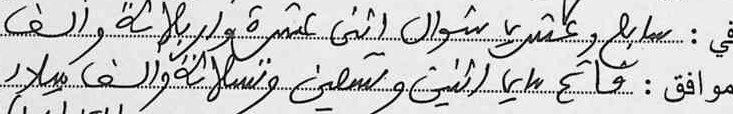 في : سابع وعشرين شوال اثنى عشرة واربعمائة والف
موافق : فاتح ماي اثنين وتسعين وتسعمائة وألف ميلاد